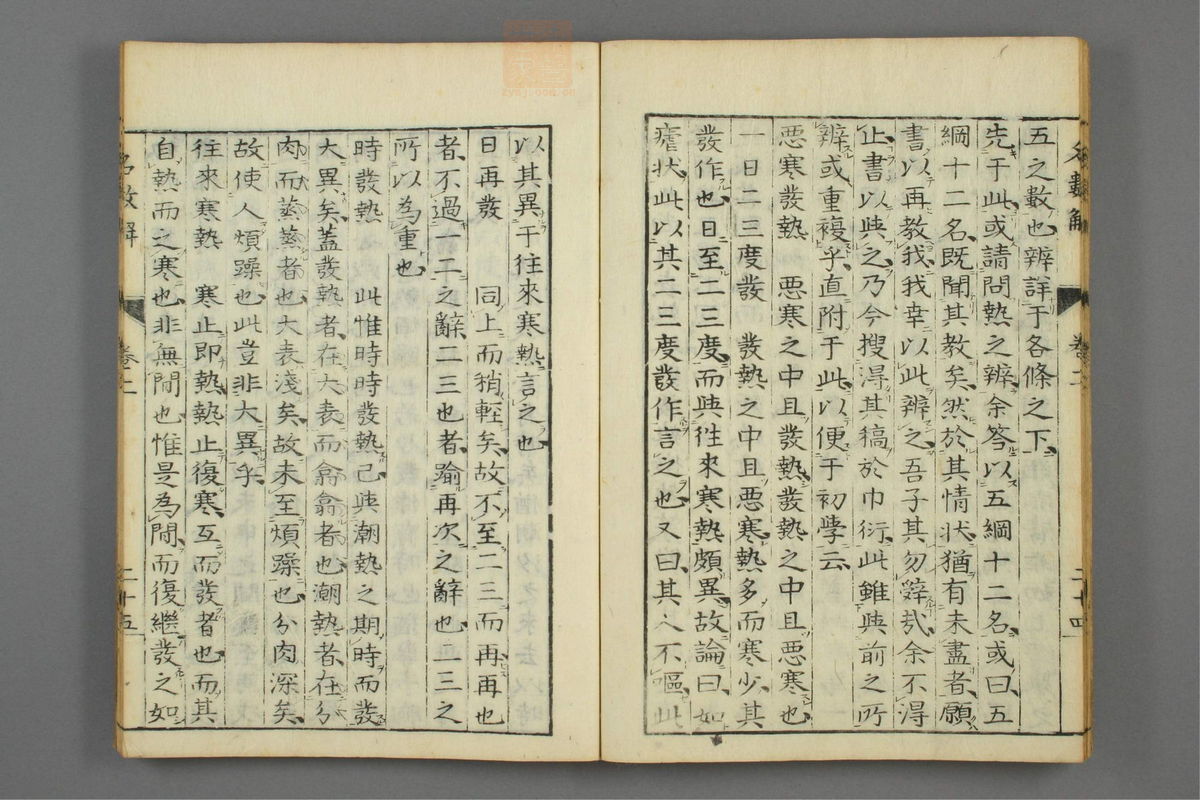 五之數也辨詳于各條之下
先于此或請問熱之辨余答以五綱十二名或曰五
綱十二名既聞其教矣然於其情狀猶有未盡者願
書以再教我我幸以此辨之吾子其勿辤哉余不得
止書以與之乃今搜淂其稿於巾衍此雖與前之所
辨或重複乎直附于此以便于初學云
惡寒發熱　惡寒之中且發熱發熱之中且惡寒也
一日二三度發　發熱之中且惡寒熱多而寒少其
發作也日至二三度而與徃來寒熱頗異故論曰如
瘧狀此以其二三度發作言之也又曰其人不嘔此
名數解
卷上
二十四
以其異于往來寒熱言之也
日再發　同上而稍輕矣故不至二三而再再也
者不過一二之辭二三也者踰再次之辭也二三之
所以為重也
時發熱　此惟時時發熱已與潮熱之期時而發
大異矣蓋發熱者在大表而翕翕者也潮熱者在分
肉而蒸蒸者也大表淺矣故未至煩躁也分肉深矣
故使人煩躁也此豈非大異乎
往來寒熱　寒止即熱熱止復寒互而發者也而其
自熱而之寒也非無間也惟是為間而復繼發之如
名數解
卷上
二十五
zysjsoon.cn